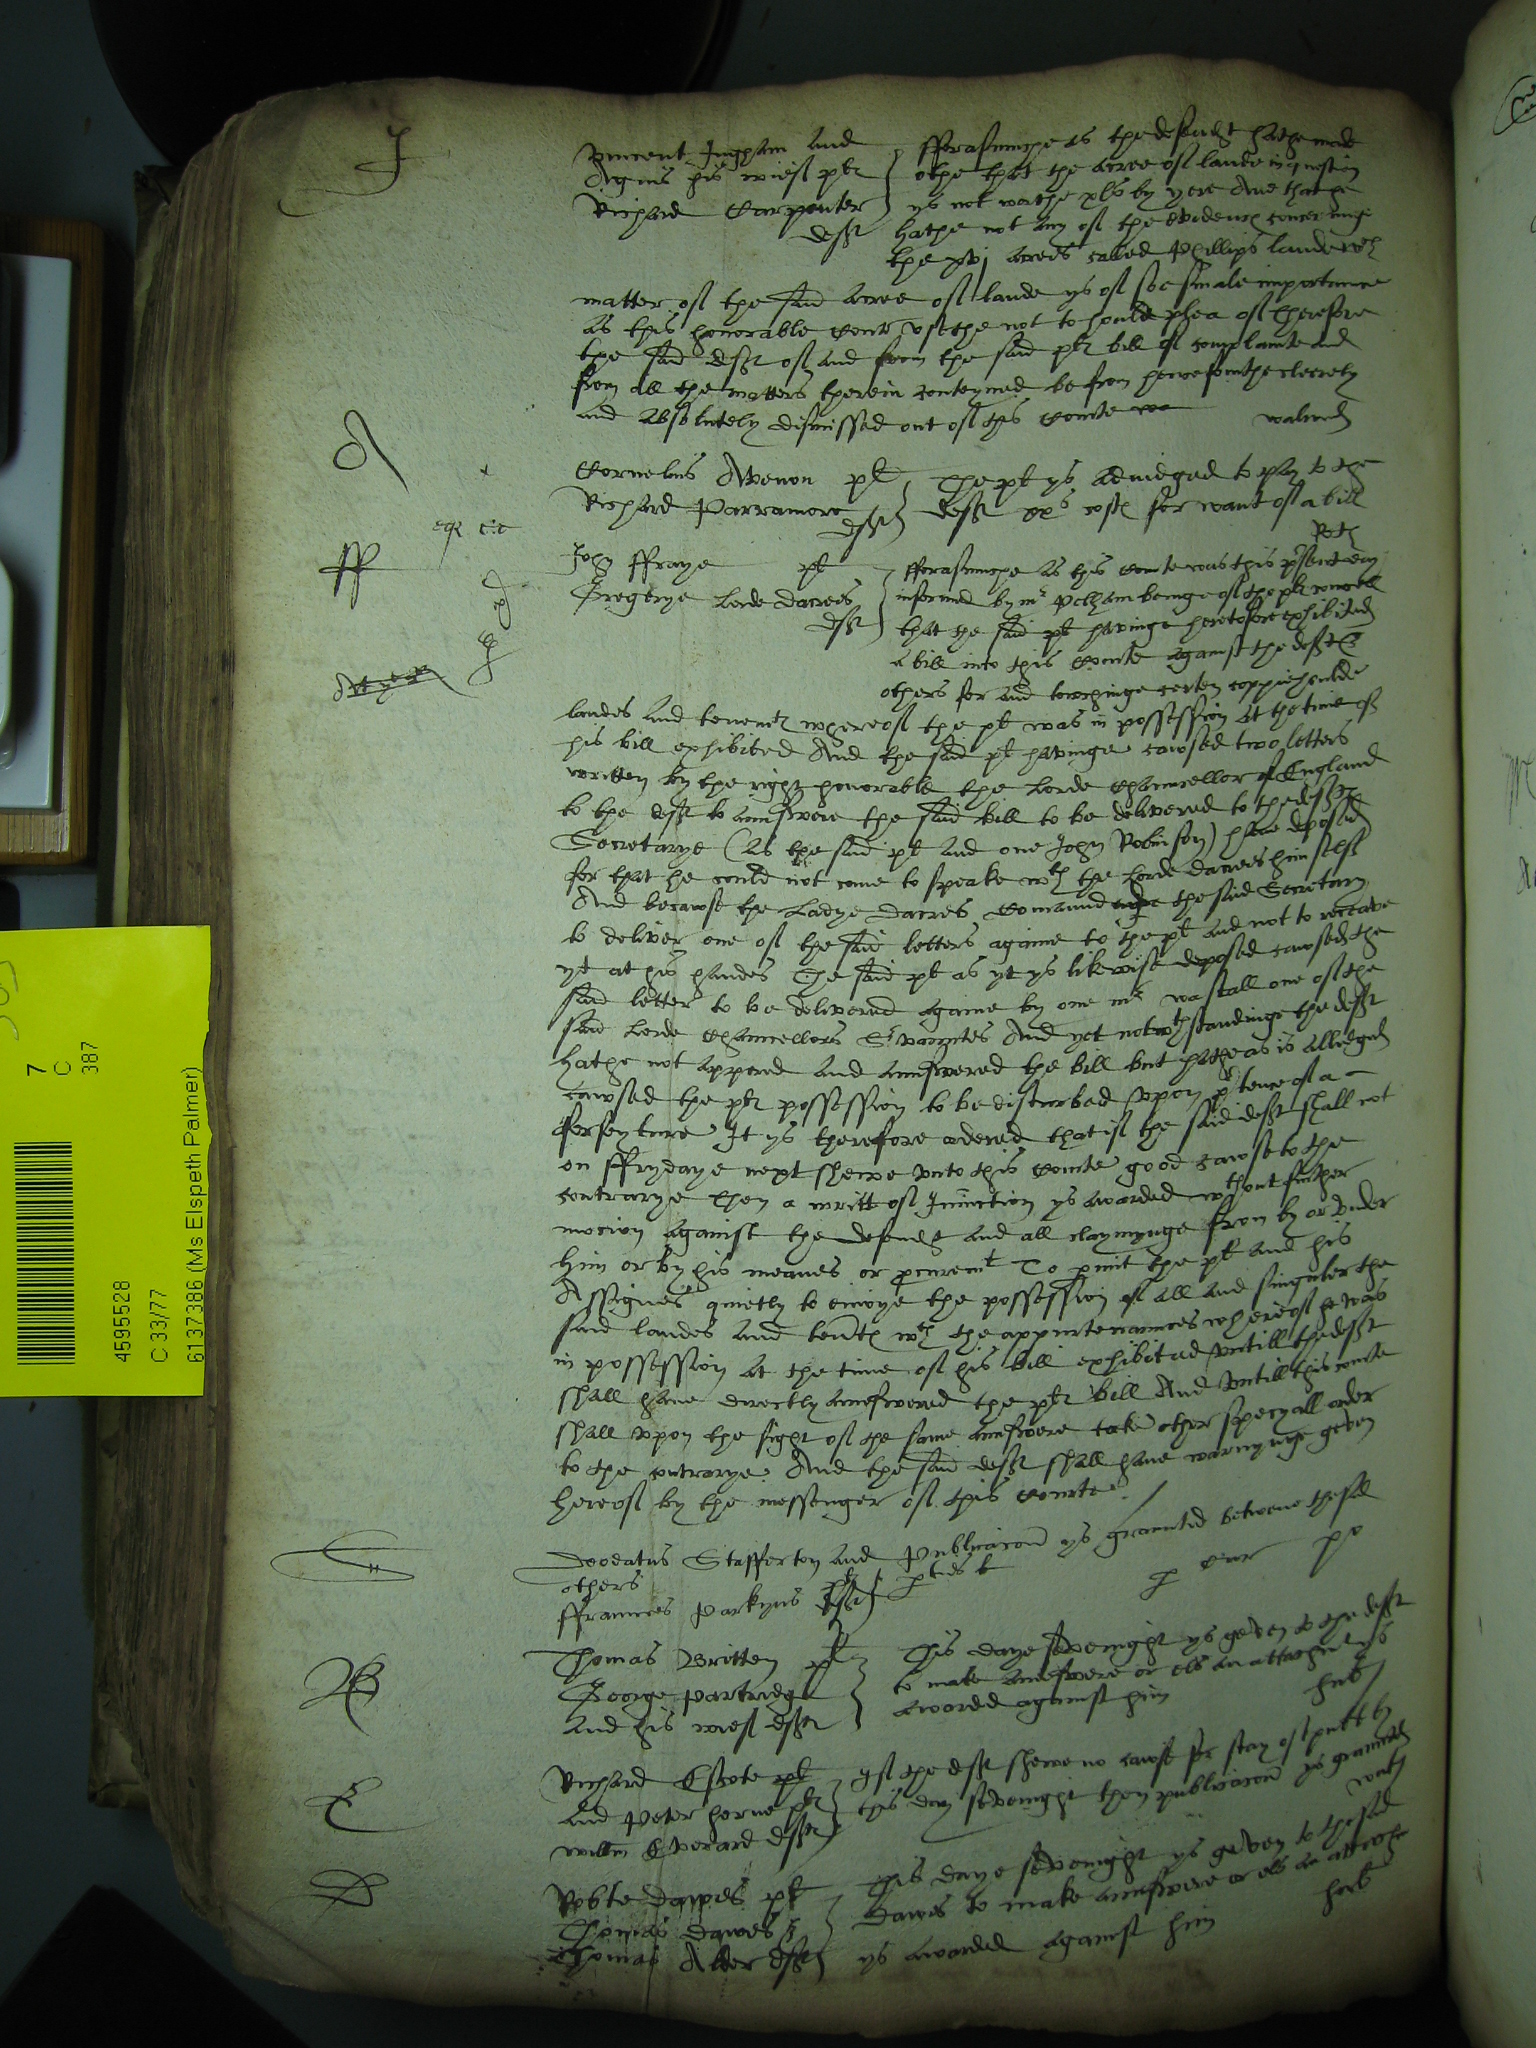 J
Vincent Ingham and
Agnis his wief plt
Richard Carpenter
deft
fforasmuche as the defendt hathe made
othe that the acree of lande in question
ys not worthe xls by yere And that he
hathe not any of the evidence concerninge
the xvj acrees called Phillips lande wch
matter of the said acree of lande ys of soe smale importance
as this honorable Court usethe not to hould plea of Therefore
the said deft of and from the said plt bill of complainte and
from all the matters therein conteyned be from hencefourthe clerely
and absolutely dismissed out of this Courte
A
Cornelius Avenon plt
Richard Parramore
deft
The plt ys adiudged to pay to the
deft xxs costes for want of a bill
ff
John ffraye plt
Gregorye Lorde Dacres
deft
fforasmuche as this Courte was this present day
informed by mr Pelham beinge of the plt councell
that the said plt havinge heretofore exhibited
a bill into this Courte against the deft &
others for and towchinge certen coppiehoulde
landes and tenemts whereof the plt was in possession at the time of
his bill exhibited And the said plt havinge cawsed two letters
written by the right honorable the Lorde Chauncellor of England
to the deft to aunswere the said bill to be delivered to the defts
Secretarye (as the said plt and one John Robinson) have deposed
for that he could not come to speake wth the Lorde Dacres him self
And becawse the Ladye Dacres Comaunded the said Secretary
to deliver one of the said letters againe to the plt and not to receave
yt at his handes The said plt as yt ys likewise deposed cawsed the
said letter to be delivered againe by one mr Wastall one of the
said Lorde Chauncellors Servauntes And yet notwthstandinge the deft
hathe not appered and aunswered the bill but hathe as is alledged
cawsed the plt possession to be disturbed upon ptence of a
forfeyture It ys therefore ordered that if the said deft shall not
on ffrydaye next shewe unto this Courte good cawse to the
contrarye Then a writt of Iniunction ys awarded wthout further
mocion against the defendt and all claymynge from by or under
him or by his meanes or procuremt To pmit the plt and his
Assignes quietly to enioye the possession of all and singuler the
said landes and tents wth the appurtenaunces whereof he was
in possession at the time of his bill exhibited untill the deft
shall have directly aunswered the plt bill And untill this Courte
shall upon the sight of the same aunswere take other specyall order
to the contrarye And the said deft shall have warnynge geven
hereof by the messenger of this Courte
Deodatus Stafferton and
others plt
ffraunces Parkyns deft
Publicacon ys graunted betwene the said
pties
B
Thomas Britten plt
George Partridge
and his wief deft
This daye sevenight ys geven to the deft
to make aunswere or els an attachmt ys
awarded against him
E
Richard Escote
and Peter horne plt
Willm Everard deft
Yf the deft shewe no cawse for stay of publc by
this day sevenight then publicacon ys graunted
D
Robte Dawes plt
Thomas Dawes
Thomas Atter deft
This daye sevenight ys geven to the said
Dawes to make aunswere or els an attachmt
ys awarded against him
7
C
387
4595528
C 33/77
6137386 (Ms Elspeth Palmer)